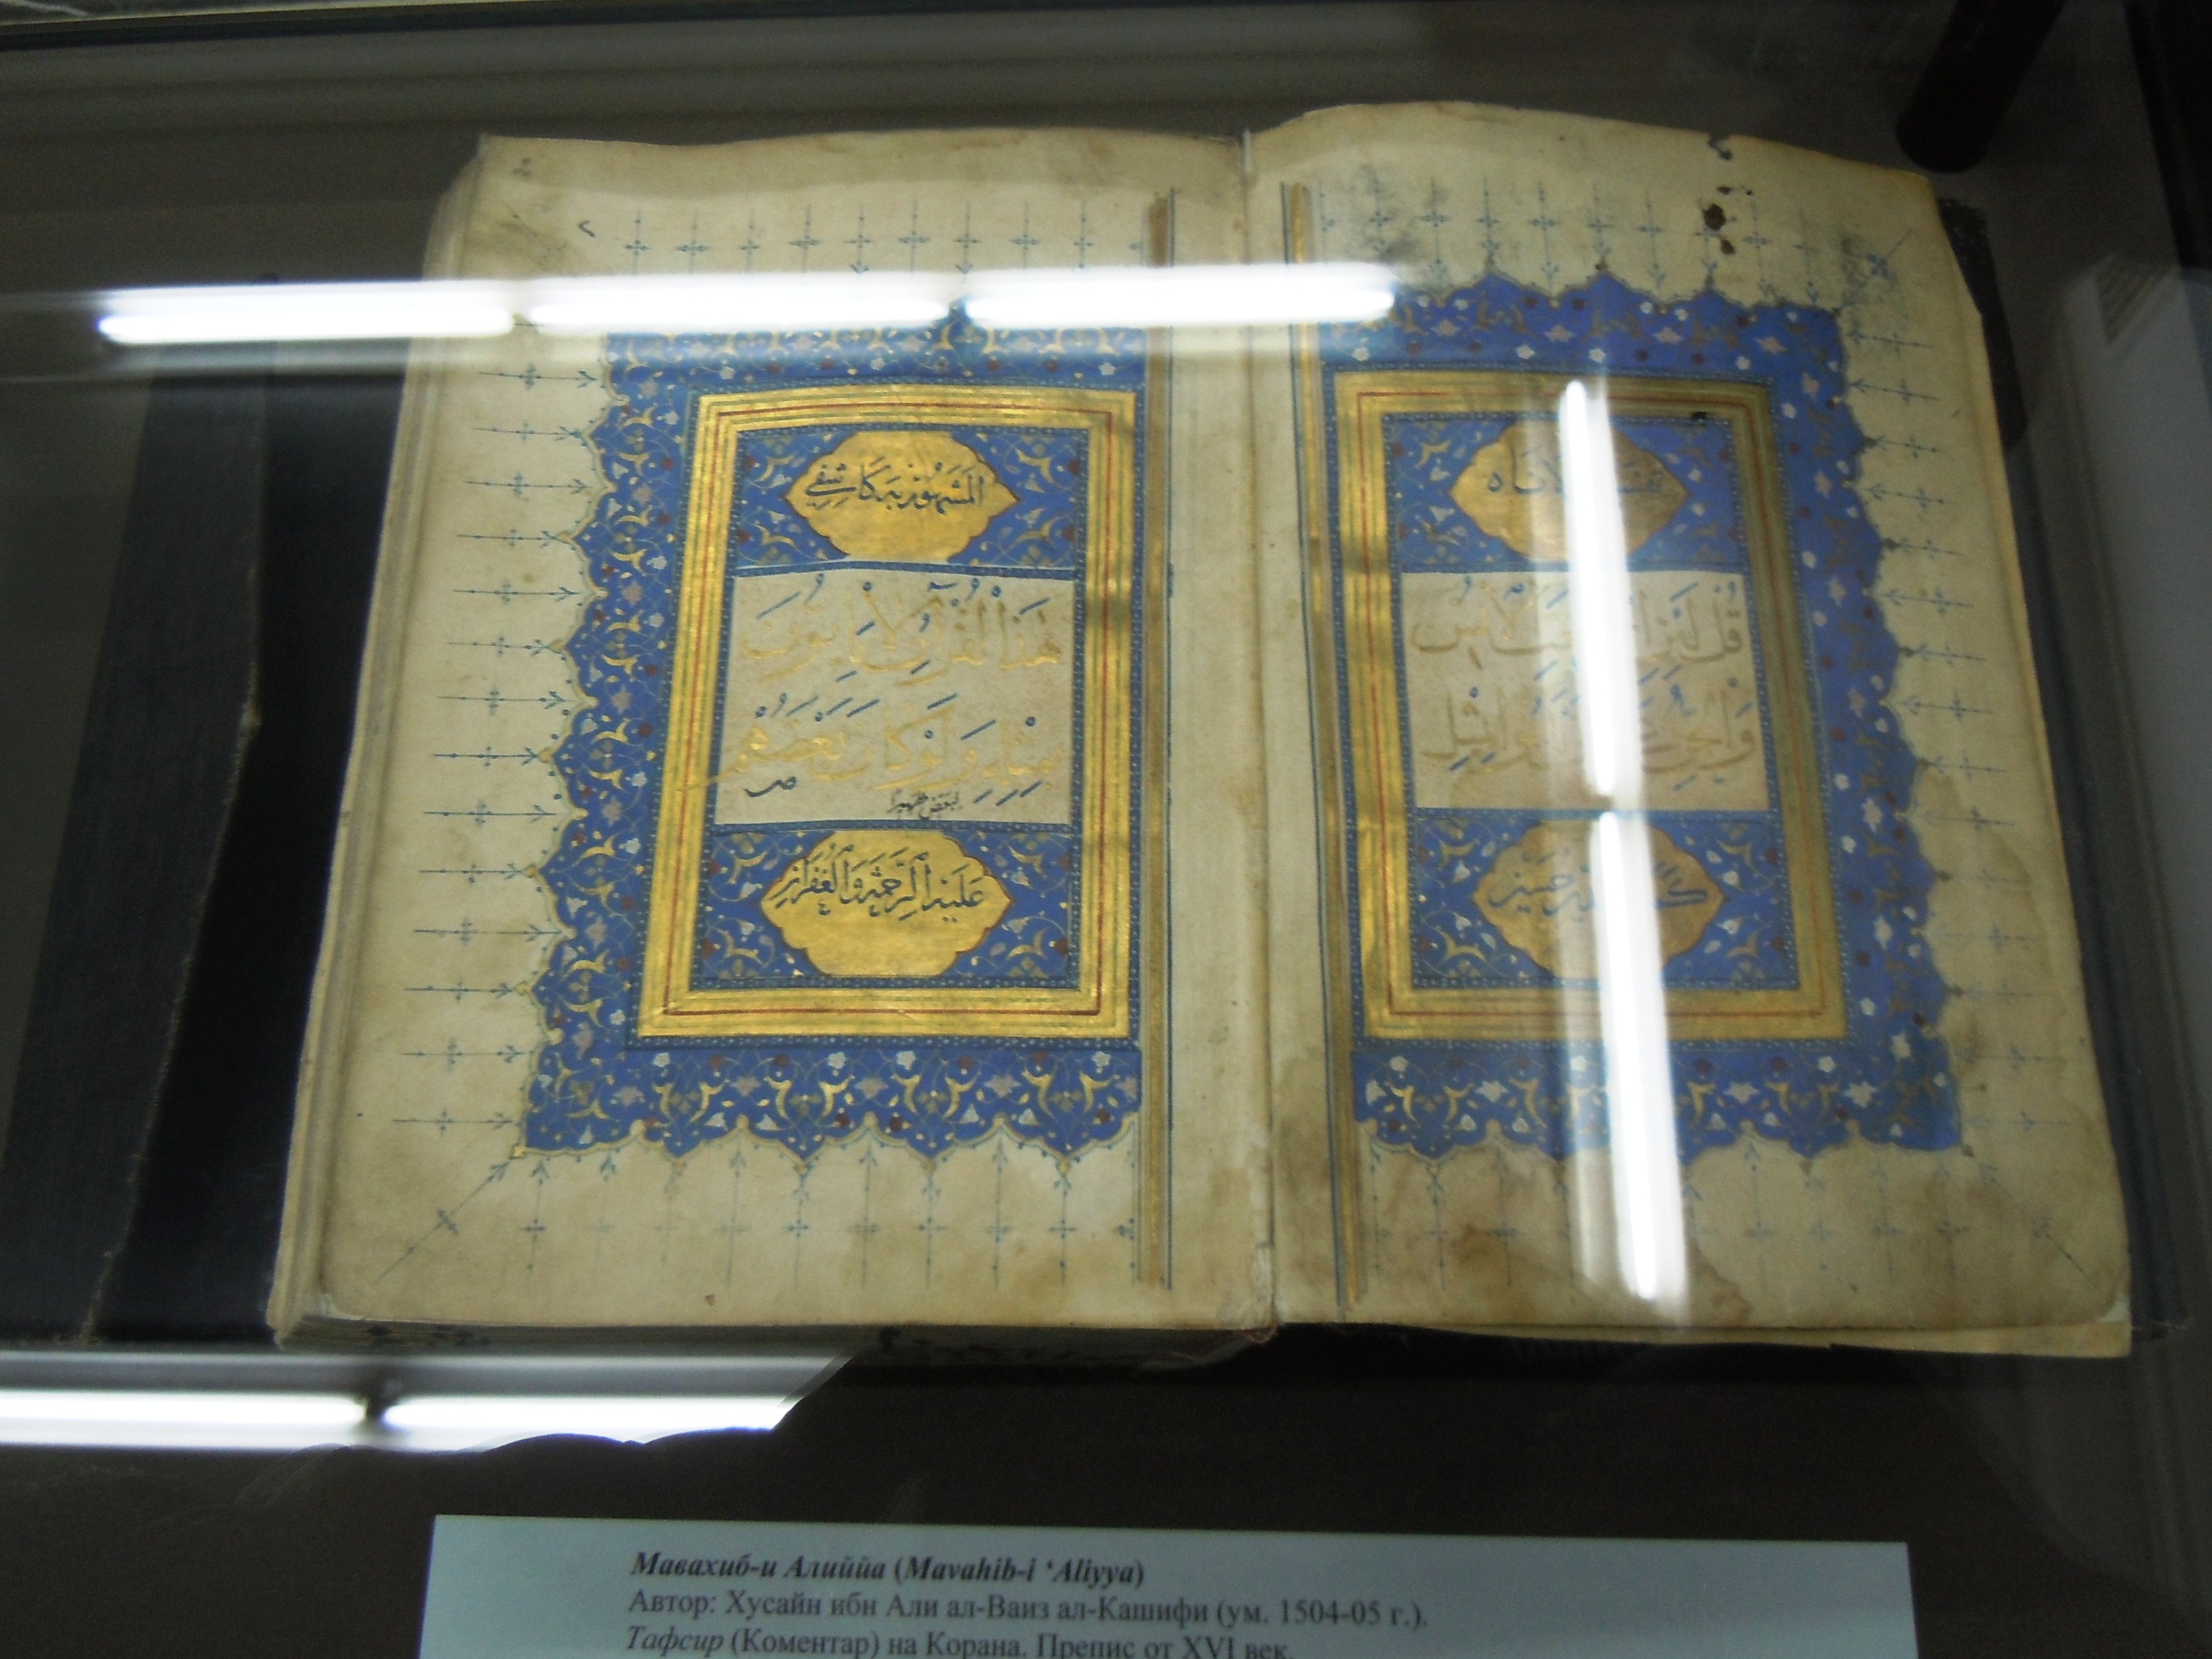 قل لئن الانس
والجن المثل
المشهور به كاشفي
هذا القرآن لا ياتون
بمثله ولو كان بعضهم
لبعض ظهيرا
عليه الرحمة والغفران
Мавахиб-и Алиййа (Mavahib-i ‘Aliyya)
Автор: Хусайн ибн Али ал-Ваиз ал-Кашифи (ум. 1504-05 г.).
Тафсир (Коментар) на Корана. Препис от XVI век.